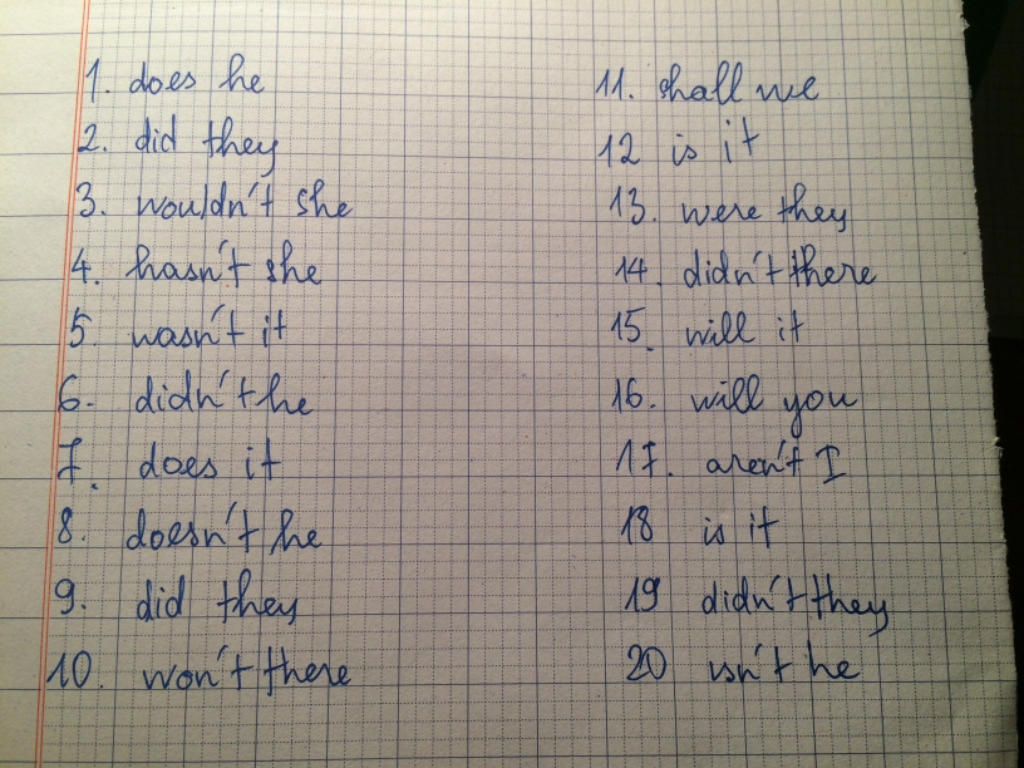 1. does he
2. did they
3. wouldn't she
4. hasn't she
5. wasn't it
6. didn't he
7. does it
8. doesn't he
9. did they
10. won't there
11. shall we
12 is it
13. were they
14. didn't there
15. will it
16. will you
17. aren't I
18 is it
19 didn't they
20 isn't he